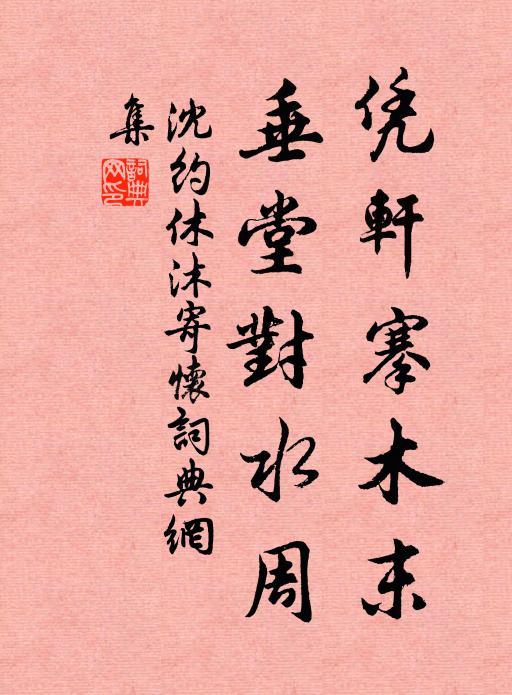 凭軒搴木末
垂堂對水周
沈約休沐寄懷詞典網
集
詞典網印